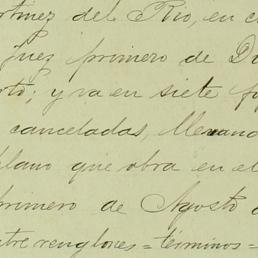 rtinez del Rio, en c
juez primero de D
rto; y va en siete fo
canceladas, llevand
plano que obra en el
primero de Agosto d
ntre renglones = términos =